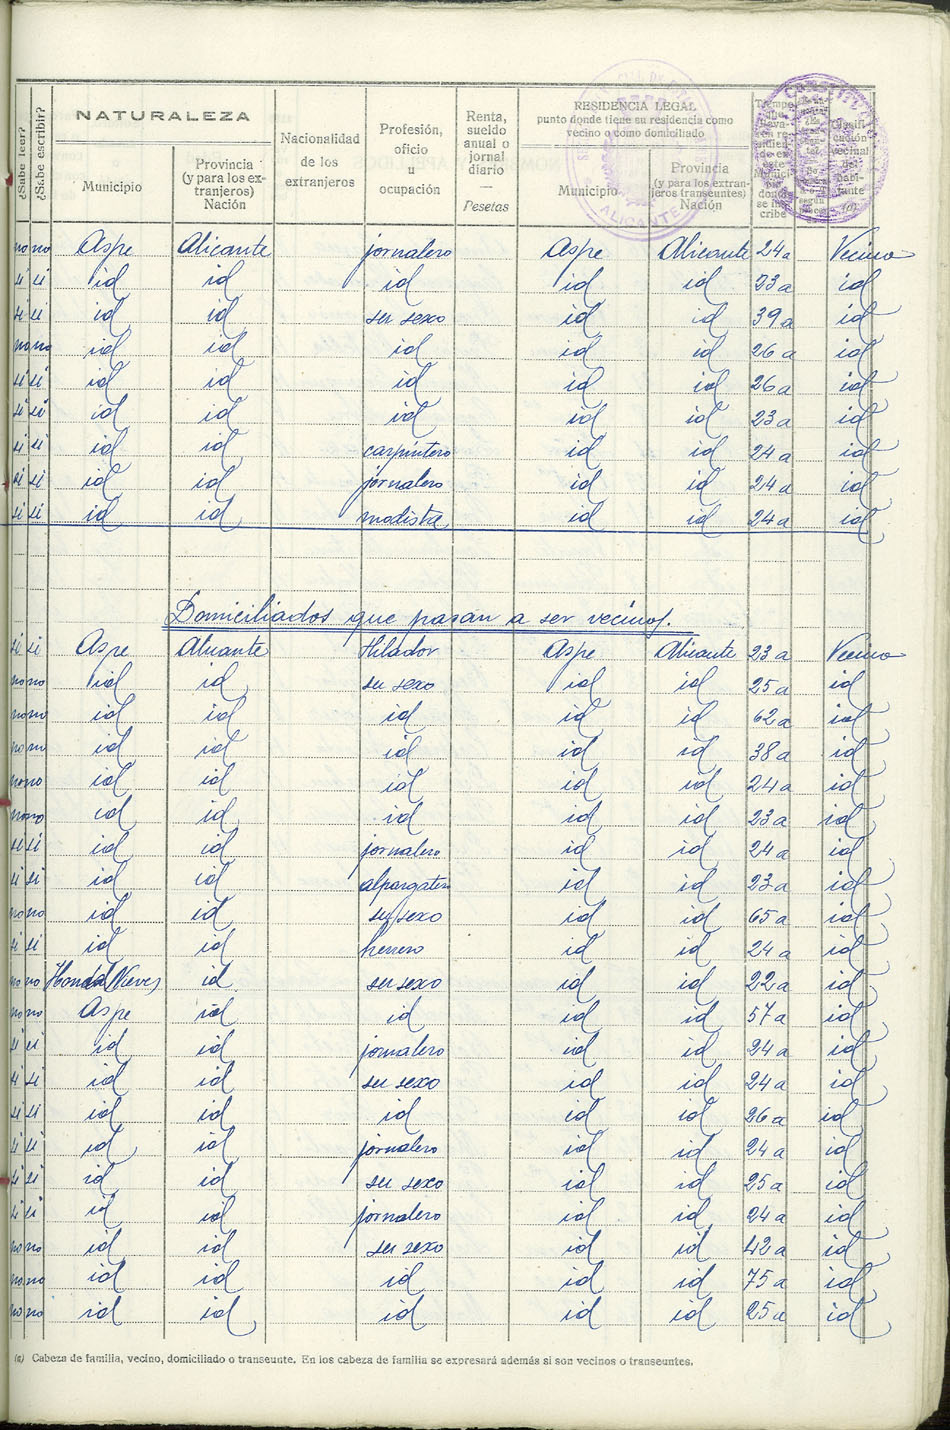 ¿Sabe leer?
¿Sabe escribir?
NATURALEZA
Municipio
Provincia
(y para los ex-
tranjeros)
Nación
Nacionalidad
de los
extranjeros
Profesión,
oficio
u
ocupación
Renta,
sueldo
anual o
jornal
diario
Pesetas
RESIDENCIA LEGAL
punto donde tiene su residencia como
vecino o como domiciliado
Municipio
Provincia
(y para los extran-
jeros transeuntes)
Nación
ALICANTE
no no Aspe Alicante jornalero Aspe Alicante 24 a Vecino
si si id id id id id 23 a id
si si id id su sexo id id 39 a id
no no id id id id id 26 a id
si si id id id id id 26 a id
si si id id id id id 23 a id
si si id id carpintero id id 24 a id
si si id id jornalero id id 24 a id
si si id id modista id id 24 a id
Domiciliados que pasan a ser vecinos.
si si Aspe Alicante Hilador Aspe Alicante 23 a Vecino
no no id id su sexo id id 25 a id
no no id id id id id 62 a id
no no id id id id id 38 a id
no no id id id id id 24 a id
no no id id id id id 23 a id
si si id id jornalero id id 24 a id
si si id id alpargatero id id 23 a id
no no id id su sexo id id 65 a id
si si id id herrero id id 24 a id
no no Hondón Nieves id su sexo id id 22 a id
no no Aspe id id id id 57 a id
si si id id jornalero id id 24 a id
si si id id su sexo id id 24 a id
si si id id id id id 26 a id
si si id id jornalero id id 24 a id
si si id id su sexo id id 25 a id
si si id id jornalero id id 24 a id
no no id id su sexo id id 42 a id
no no id id id id id 75 a id
no no id id id id id 25 a id
(a) Cabeza de familia, vecino, domiciliado o transeunte. En los cabeza de familia se expresará además si son vecinos o transeuntes.